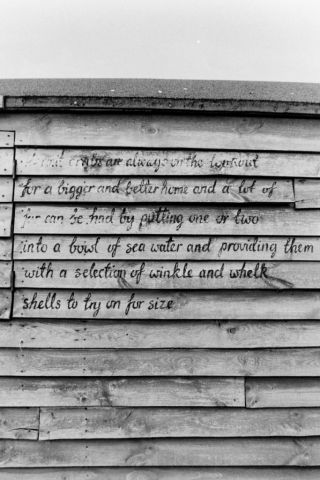 crabs are always on the lookout
for a bigger and better home and a lot of
fun can be had by putting one or two
into a bowl of sea water and providing them
with a selection of winkle and whelk
shells to try on for size